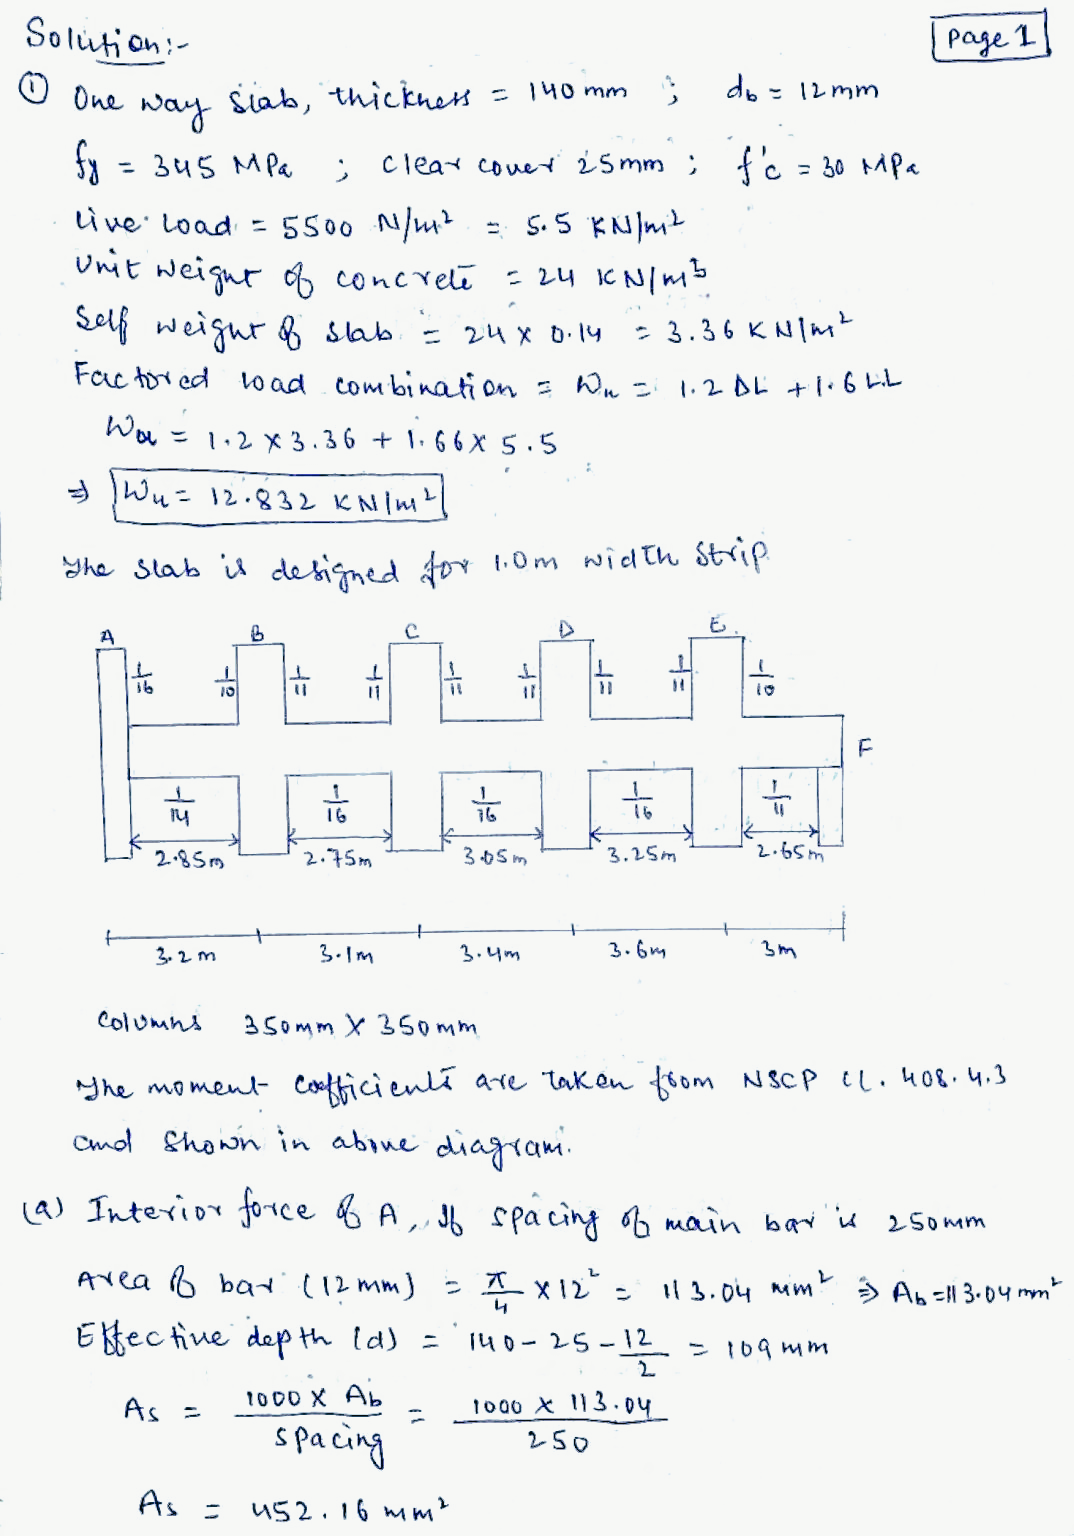 Solution:-
Page 1
① One way slab, thickness = 140 mm ; db = 12 mm
fy = 345 MPa ; clear cover 25 mm ; f'c = 30 MPa
Live load = 5500 N/m² = 5.5 KN/m²
Unit weight of concrete = 24 KN/m³
Self weight of slab = 24 x 0.14 = 3.36 KN/m²
Factored load combination = Wu = 1.2 DL + 1.6 LL
Wu = 1.2 x 3.36 + 1.66 x 5.5
⇒ Wu = 12.832 KN/m²
The slab is designed for 1.0m width strip
A B C D E
1/16 1/10 1/11 1/11 1/11 1/11 1/11 1/11 1/10
F
1/14 1/16 1/16 1/16 1/11
2.85m 2.75m 3.05m 3.25m 2.65m
3.2m 3.1m 3.4m 3.6m 3m
Columns 350mm x 350mm
The moment coefficients are taken from NSCP cl. 408.4.3
and shown in above diagram.
(a) Interior force of A, if spacing of main bar is 250mm
Area of bar (12 mm) = π/4 x 12² = 113.04 mm² ⇒ Ab = 113.04 mm²
Effective depth (d) = 140 - 25 - 12/2 = 109 mm
As = 1000 x Ab / spacing = 1000 x 113.04 / 250
As = 452.16 mm²